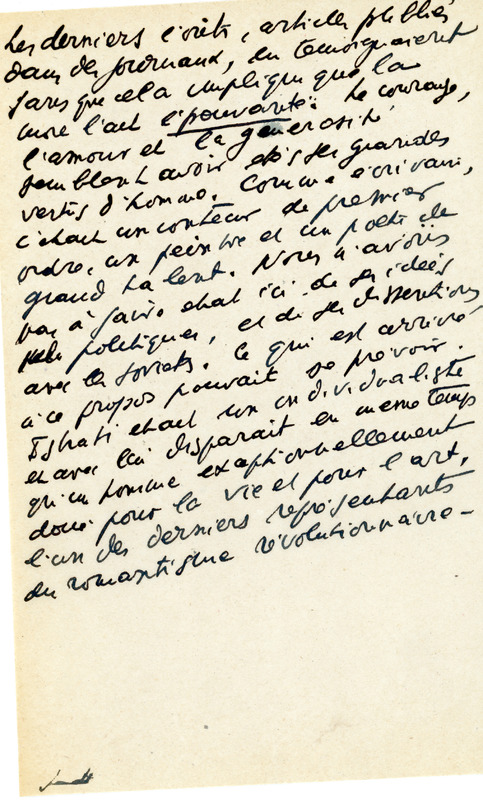 Les derniers écrits, articles publiés
dans des journaux, en témoignaient
sans que cela implique que la
mort l'ait épouvanté. Le courage,
l'amour et la générosité
semblent avoir été ses grandes
vertus d'homme. Comme écrivain,
c'était un conteur de premier
ordre, un peintre et un poète de
grand talent. Nous n'avons
pas à faire état ici de ses idées
politiques, et de ses dissentions
avec les soviets. Ce qui est arrivé
à ce propos pouvait se prévoir.
Istrati était un individualiste
et avec lui disparaît en même temps
qu'un homme exceptionnellement
doué pour la vie et pour l'art,
l'un des derniers représentants
du romantisme révolutionnaire-